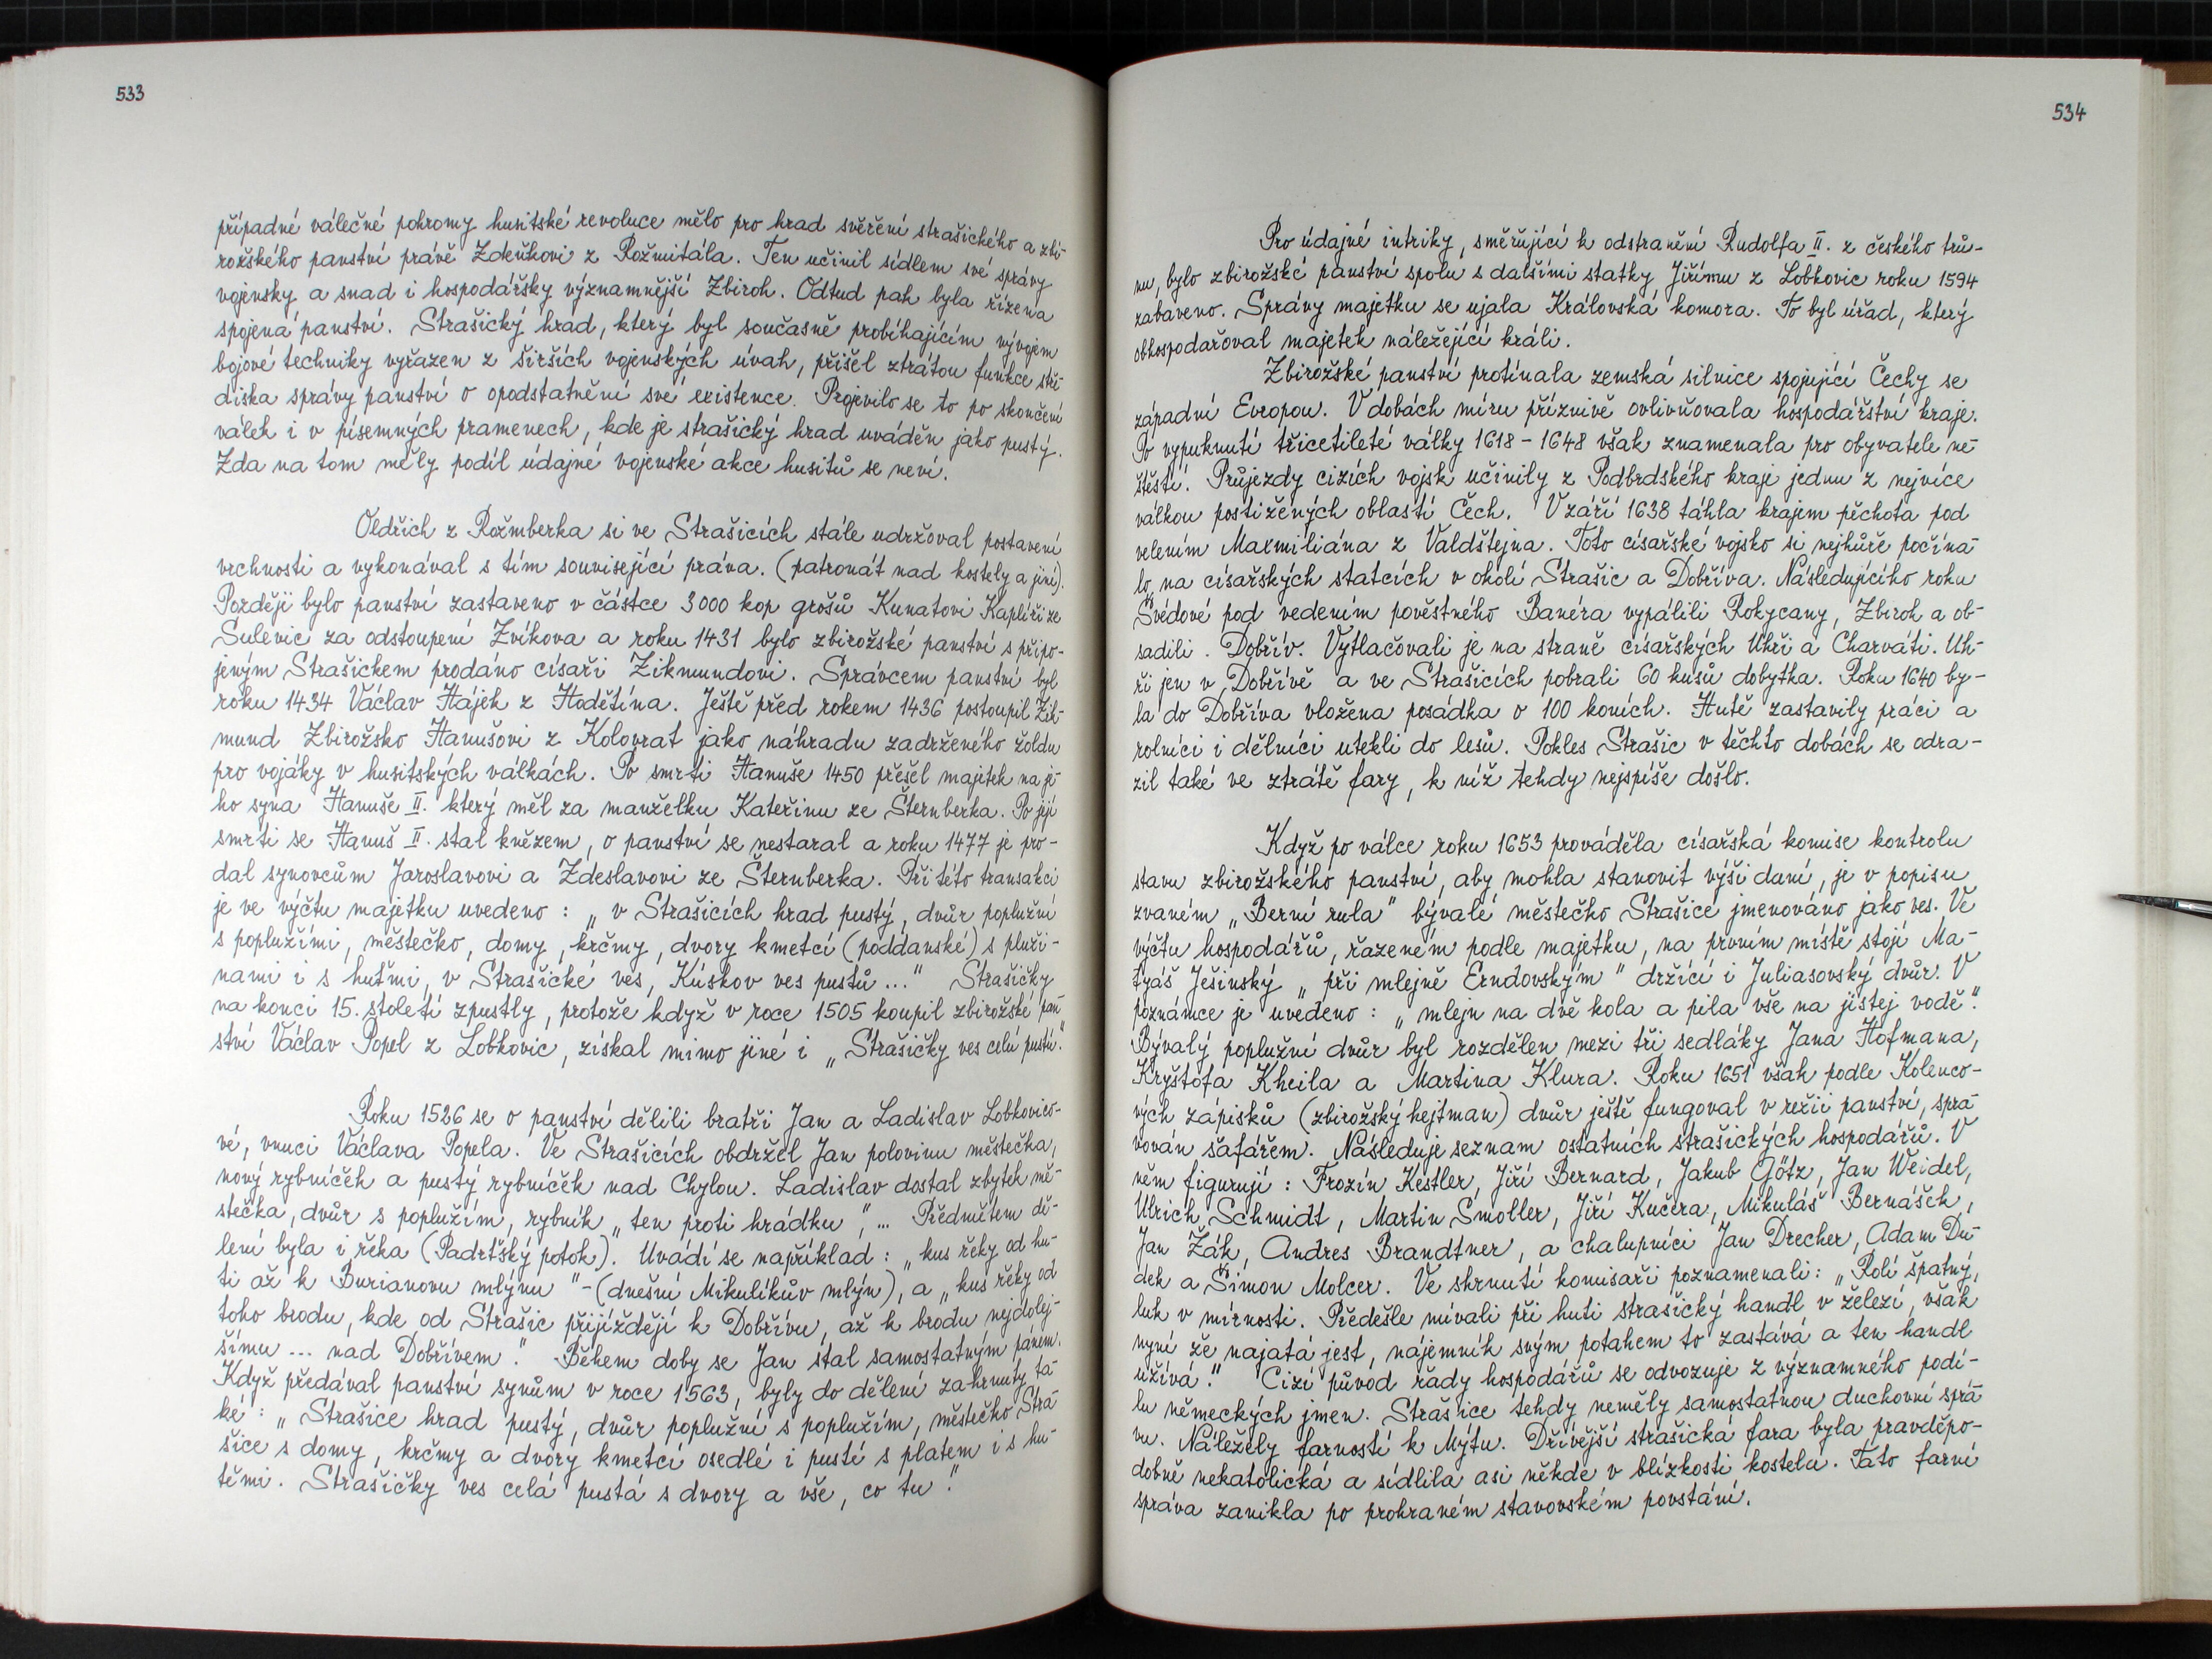 533
případné válečné pohromy husitské revoluce mělo pro hrad svěření strašického a zbi-
rožského panství právě Zdeňkovi z Rožmitála. Ten učinil sídlem své správy
vojensky a snad i hospodářsky významnější Zbiroh. Odtud pak byla řízena
spojená panství. Strašický hrad, který byl současně probíhajícím vývojem
bojové techniky vyřazen z širších vojenských úvah, přišel ztrátou funkce stře-
diska správy panství o opodstatnění své existence. Projevilo se to po skončení
válek i v písemných pramenech, kde je strašický hrad uváděn jako pustý.
Zda na tom měly podíl údajné vojenské akce husitů se neví.
Oldřich z Rožmberka si ve Strašicích stále udržoval postavení
vrchnosti a vykonával s tím související práva. (patronát nad kostely a jiní).
Později bylo panství zastaveno v částce 3000 kop grošů Kunatovi Kaplíři ze
Sulevic za odstoupení Zvíkova a roku 1431 bylo zbirožské panství s připo-
jeným Strašickem prodáno císaři Zikmundovi. Správcem panství byl
roku 1434 Václav Hájek z Hodětína. Ještě před rokem 1436 postoupil Zik-
mund Zbirožsko Hanušovi z Kolovrat jako náhradu zadrženého žoldu
pro vojáky v husitských válkách. Po smrti Hanuše 1450 přešel majetek na je-
ho syna Hanuše II. který měl za manželku Kateřinu ze Šternberka. Po její
smrti se Hanuš II. stal knězem, o panství se nestaral a roku 1477 je pro-
dal synovcům Jaroslavovi a Zdeslavovi ze Šternberka. Při této transakci
je ve výčtu majetku uvedeno : „v Strašicích hrad pustý, dvůr poplužní
s poplužími, městečko, domy, krčmy, dvory kmetcí (poddanské) s pluži-
nami i s hutmi, v Strašické ves, Kúskov ves pustů ..." Strašičky
na konci 15. století zpustly, protože když v roce 1505 koupil zbirožské pan-
ství Václav Popel z Lobkovic, získal mimo jiné i „Strašičky ves celú pustu."
Roku 1526 se o panství dělili bratři Jan a Ladislav Lobkovico-
vé, vnuci Václava Popela. Ve Strašicích obdržel Jan polovinu městečka,
nový rybníček a pustý rybníček nad Chylou. Ladislav dostal zbytek mě-
stečka, dvůr s poplužím, rybník „ten proti hrádku", ... Předmětem dě-
lení byla i řeka (Padrťský potok). Uvádí se například : „kus řeky od hu-
ti až k Burianovu mlýnu" - (dnešní Mikulíkův mlýn), a „kus řeky od
toho brodu, kde od Strašic přijíždějí k Dobřívu, až k brodu nejdolej-
šímu ... nad Dobřívem." Během doby se Jan stal samostatným pánem.
Když předával panství synům v roce 1563, byly do dělení zahrnuty ta-
ké : „Strašice hrad pustý, dvůr poplužní s poplužím, městečko Stra-
šice s domy, krčmy a dvory kmetcí osedlé i pusté s platem i s hu-
těmi. Strašičky ves celá pustá s dvory a vše, co tu."
534
Pro údajné intriky, směřující k odstranění Rudolfa II. z českého trů-
nu, bylo zbirožské panství spolu s dalšími statky Jiřímu z Lobkovic roku 1594
zabaveno. Správy majetku se ujala Královská komora. To byl úřad, který
obhospodařoval majetek náležející králi.
Zbirožské panství protínala zemská silnice spojující Čechy se
západní Evropou. V dobách míru příznivě ovlivňovala hospodářství kraje.
Po vypuknutí třicetileté války 1618 - 1648 však znamenala pro obyvatele ne-
štěstí. Průjezdy cizích vojsk učinily z Podbrdského kraje jednu z nejvíce
válkou postižených oblastí Čech. V září 1638 táhla krajem pěchota pod
velením Maxmiliána z Valdštejna. Toto císařské vojsko si nejhůře počína-
lo na císařských statcích v okolí Strašic a Dobříva. Následujícího roku
Švédové pod vedením pověstného Banéra vypálili Rokycany, Zbiroh a ob-
sadili . Dobřív. Vytlačovali je na straně císařských Uhři a Charváti. Uh-
ři jen v Dobřívě a ve Strašicích pobrali 60 kusů dobytka. Roku 1640 by-
la do Dobříva vložena posádka o 100 koních. Hutě zastavily práci a
rolníci i dělníci utekli do lesů. Pokles Strašic v těchto dobách se odra-
zil také ve ztrátě fary, k níž tehdy nejspíše došlo.
Když po válce roku 1653 prováděla císařská komise kontrolu
stavu zbirožského panství, aby mohla stanovit výši daní, je v popisu
zvaném „Berní rula" bývalé městečko Strašice jmenováno jako ves. Ve
výčtu hospodářů, řazeném podle majetku, na prvním místě stojí Ma-
tyáš Ješinský „při mlejně Erndovským" držící i Juliasovský dvůr. V
poznámce je uvedeno : „mlejn na dvě kola a pila vše na jistej vodě".
Bývalý poplužní dvůr byl rozdělen mezi tři sedláky Jana Hofmana,
Kryštofa Kheila a Martina Klura. Roku 1651 však podle Kolenco-
vých zápisků (zbirožský hejtman) dvůr ještě fungoval v režii panství, spra-
vován šafářem. Následuje seznam ostatních strašických hospodářů. V
něm figurují : Frozín Kestler, Jiří Bernard, Jakub Götz, Jan Weidel,
Ulrich Schmidt, Martin Smoller, Jiří Kučera, Mikuláš Bernášek,
Jan Žák, Andres Brandtner, a chalupníci Jan Drecher, Adam Du-
dek a Šimon Molcer. Ve skrnutí komisaři poznamenali: „Rolí špatný,
luk v mírnosti. Předešle mívali při huti strašický handl v železí, však
nyní že najatá jest, nájemník svým potahem to zastává a ten handl
užívá." Cizí původ řady hospodářů se odvozuje z významného podí-
lu německých jmen. Strašice tehdy neměly samostatnou duchovní sprá-
vu. Náležely farností k Mýtu. Dřívější strašická fara byla pravděpo-
dobně nekatolická a sídlila asi někde v blízkosti kostela. Tato farní
správa zanikla po prohraném stavovském povstání.